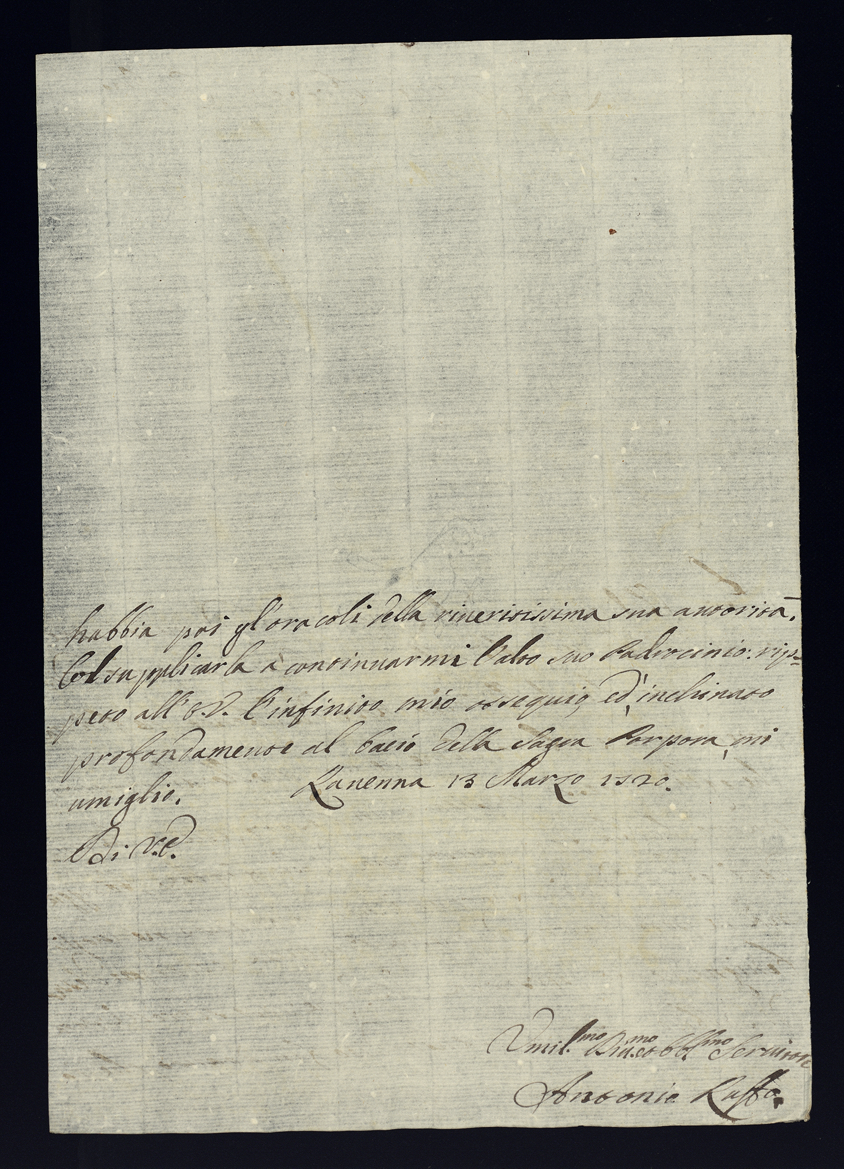 habbia poi gl'oracoli della riueritissima sua autorità.
Col supplicarla a continuarmi l'alto suo Padrocinio: rip=
peto all'E.V. l'infinito mio ossequio, ed' inclinato
profondamente al bacio della Sagra Porpora, mi
umiglio. Rauenna 13 Marzo 1720.
Di V.E.
Vmil.mo Diu.mo et Obl.mo Seruitore
Antonio Ruffo